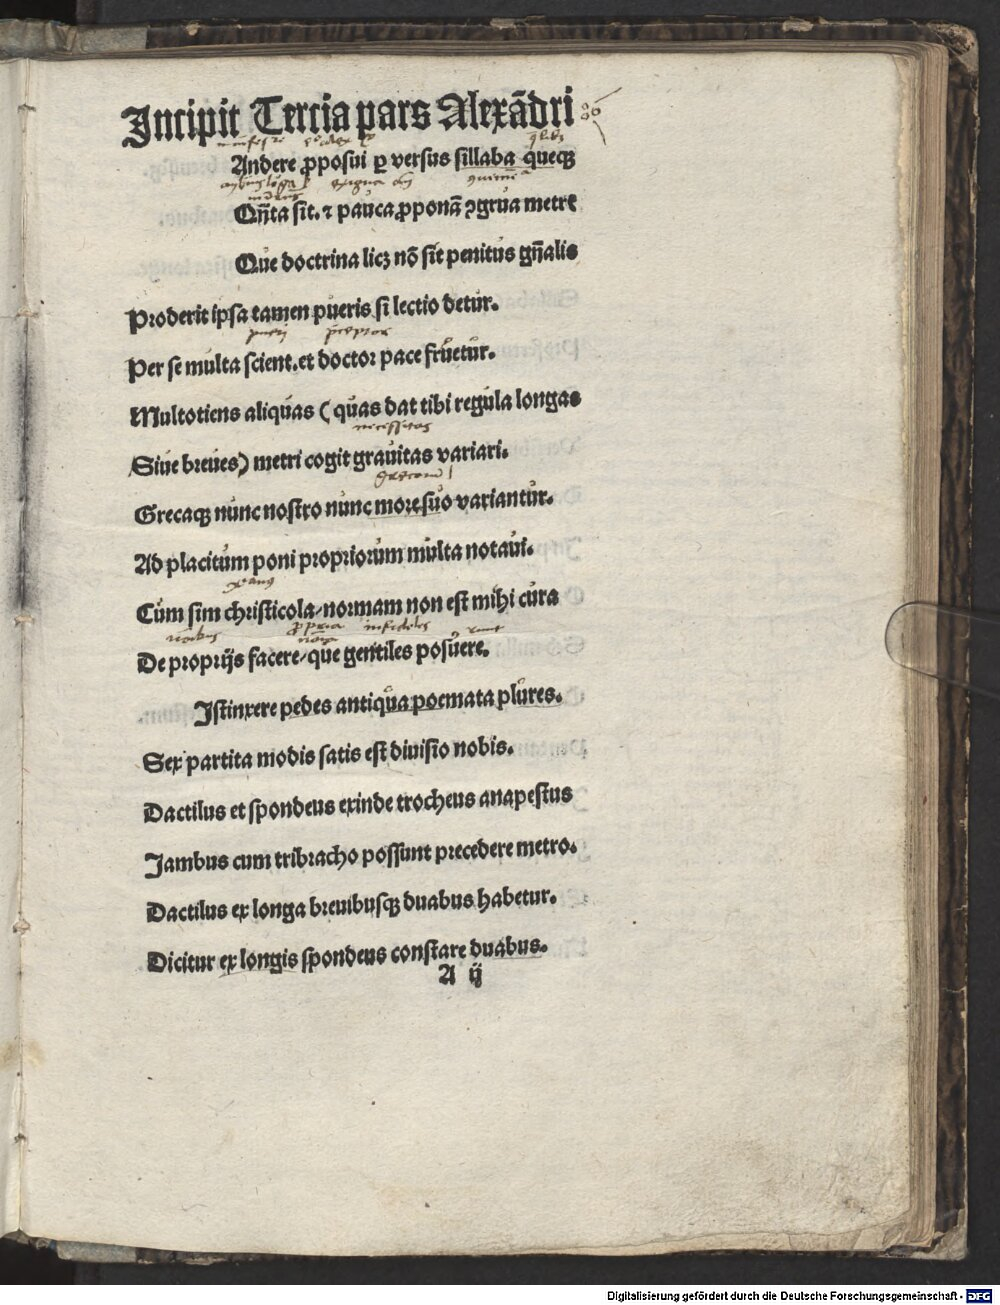 Incipit Tercia pars Alexādri
Andere ꝓposui ꝑ versus sillaba queqꝫ
Qn̄ta sit. ⁊ pauca ꝓponā ꝯgrua metre
Que doctrina licꝫ nō sit penitus gn̄alis
Proderit ipsa tamen pueris si lectio detur.
pueri preceptor
Per se multa scient. et doctor pace fruetur.
Multotiens aliquas ( quas dat tibi regula longas
necessitas
Siue breues) metri cogit grauitas variari.
grecorum
Grecaqꝫ nunc nostro nunc more suo variantur.
Ad placitum poni propriorum multa notaui.
Cum sim christicola/normam non est mihi cura
infideles
De proprijs facere/que gentiles posuere.
Istinxere pedes antiqua poemata plures.
Sex partita modis satis est diuisio nobis.
Dactilus et spondeus exinde trocheus anapestus
Iambus cum tribracho possunt precedere metro.
Dactilus ex longa breuibusqꝫ duabus habetur.
Dicitur ex longis spondeus constare duabus.
A ij
Digitalisierung gefördert durch die Deutsche Forschungsgemeinschaft - DFG